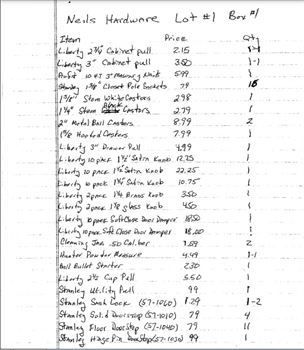 Neils Hardware Lot #1 Box #1
Item Price Qty
Liberty 2 3/4" Cabinet pull 2.15 1-1
Liberty 3" Cabinet pull 3.60 1-1
10 #3 3" Masonry Nails 5.99 1
Stanley 1 3/8" Closet Pole Sockets .79
1 5/8" Stem White Castors 2.98 1
1 1/4" Stem Black Castors 2.79 1
2" Metal Ball Castors 8.99 2
1 5/8 Hooded Castors 7.99 1
Liberty 3" Drawer Pull 4.99 1
Liberty 10 pack 1 1/4" Satin Knob 12.75 1
Liberty 10 pack Satin Knob 22.25 1
Liberty 10 pack Satin Knob 10.75 1
Liberty 2 pack 1 1/4 Brass Knob 3.50 1
Liberty 2 pack 1 3/8 glass Knob 4.50 1
Liberty 10 pack Soft Close Door Damper 18.50 1
Liberty 10 pack Soft Close Door Damper 18.00 1
Cleaning Jag .50 Caliber 1.69 2
Hunter Powder Measure 4.49 1-1
Ball Bullet Starter 2.30 1
Liberty 2 1/2 Cup Pull 5.50 1
Stanley Utility Pull 99 1
Stanley Sash Lock (57-1060) 1.29 1-2
Stanley Solid Doorstop (57-1010) 79 4
Stanley Floor Doorstop (57-1040) 79 11
Stanley Hinge Pin Doorstop (57-1030) 99 1